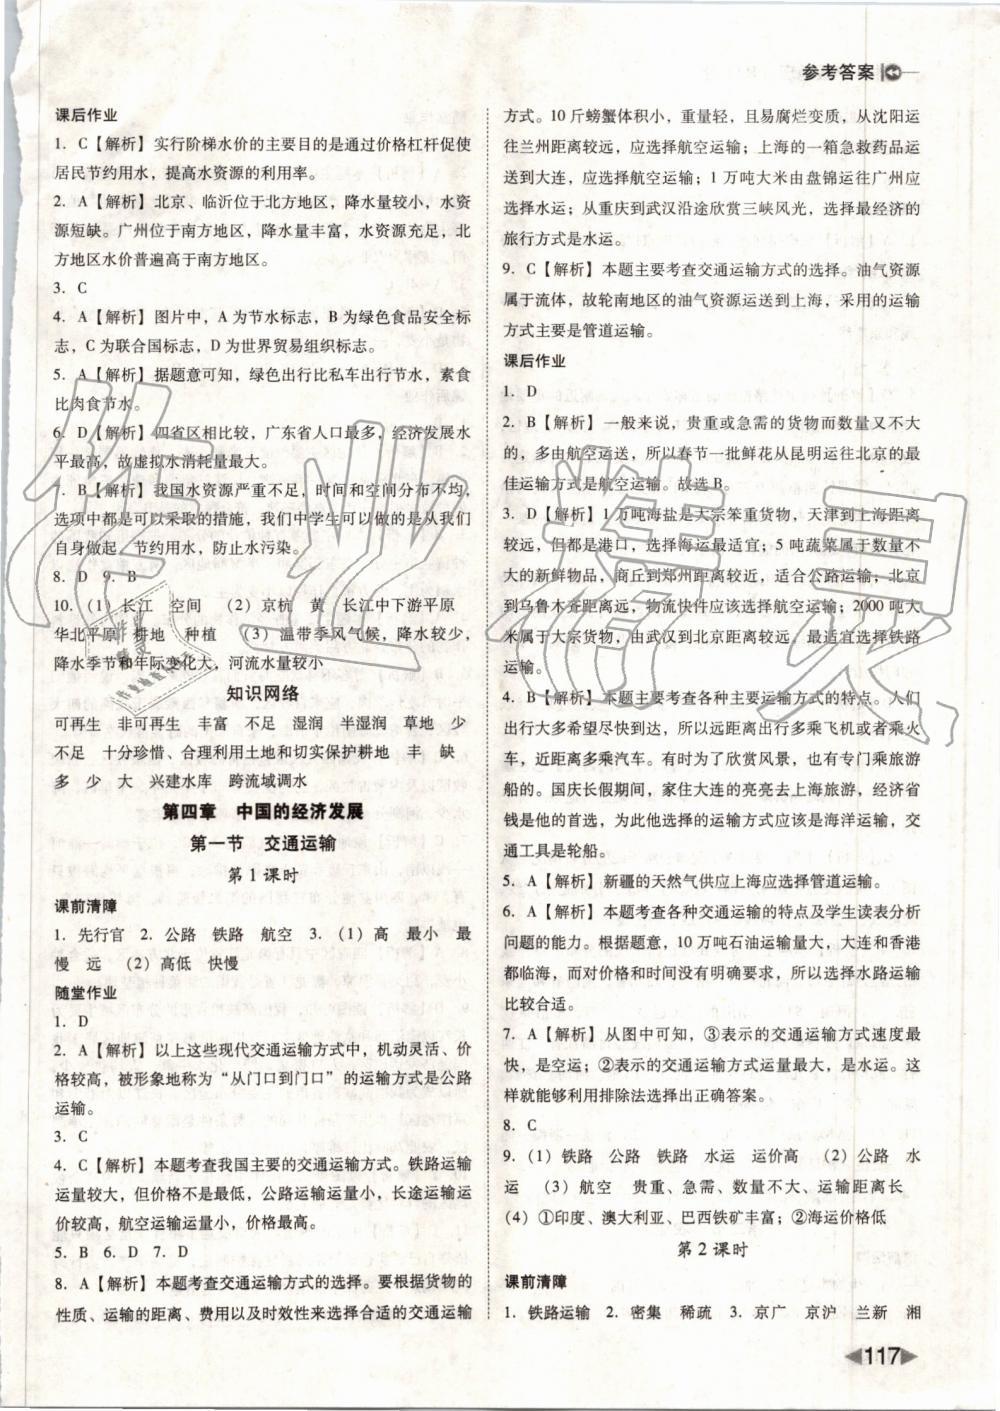 参考答案
课后作业
1. C【解析】实行阶梯水价的主要目的是通过价格杠杆促使
居民节约用水，提高水资源的利用率。
2. A【解析】北京、临沂位于北方地区，降水量较小，水资
源短缺。广州位于南方地区，降水量丰富，水资源充足，北
方地区水价普遍高于南方地区。
3. C
4. A【解析】图片中，A为节水标志，B为绿色食品安全标
志，C为联合国标志，D为世界贸易组织标志。
5. A【解析】据题意可知，绿色出行比私车出行节水，素食
比肉食节水。
6. D【解析】四省区相比较，广东省人口最多，经济发展水
平最高，故虚拟水消耗量最大。
7. B【解析】我国水资源严重不足，时间和空间分布不均，
选项中都是可以采取的措施，我们中学生可以做的是从我们
自身做起，节约用水，防止水污染。
8. D 9. B
10. （1）长江 空间 （2）京杭 黄 长江中下游平原
华北平原 耕地 种植 （3）温带季风气候，降水较少，
降水季节和年际变化大，河流水量较小
知识网络
可再生 非可再生 丰富 不足 湿润 半湿润 草地 少
不足 十分珍惜、合理利用土地和切实保护耕地 丰 缺
多 少 大 兴建水库 跨流域调水
第四章 中国的经济发展
第一节 交通运输
第1课时
课前清障
1. 先行官 2. 公路 铁路 航空 3. （1）高 最小 最
慢 远 （2）高低 快慢
随堂作业
1. D
2. A【解析】以上这些现代交通运输方式中，机动灵活、价
格较高，被形象地称为“从门口到门口”的运输方式是公路
运输。
3. C
4. C【解析】本题考查我国主要的交通运输方式。铁路运输
运量较大，但价格不是最低，公路运输运量小，长途运输运
价较高，航空运输运量小，价格最高。
5. B 6. D 7. D
8. A【解析】本题考查交通运输方式的选择。要根据货物的
性质、运输的距离、费用以及时效性来选择合适的交通运输
方式。10斤螃蟹体积小，重量轻，且易腐烂变质，从沈阳运
往兰州距离较远，应选择航空运输；上海的一箱急救药品运
送到大连，应选择航空运输；1万吨大米由盘锦运往广州应
选择水运；从重庆到武汉沿途欣赏三峡风光，选择最经济的
旅行方式是水运。
9. C【解析】本题主要考查交通运输方式的选择。油气资源
属于流体，故轮南地区的油气资源运送到上海，采用的运输
方式主要是管道运输。
课后作业
1. D
2. B【解析】一般来说，贵重或急需的货物而数量又不大
的，多由航空运送，所以春节一批鲜花从昆明运往北京的最
佳运输方式是航空运输。故选B。
3. D【解析】1万吨海盐是大宗笨重货物，天津到上海距离
较远，但都是港口，选择海运最适宜；5吨蔬菜属于数量不
大的新鲜物品，商丘到郑州距离较近，适合公路运输；北京
到乌鲁木齐距离远，物流快件应该选择航空运输；2000吨大
米属于大宗货物，由武汉到北京距离较远，最适宜选择铁路
运输。
4. B【解析】本题主要考查各种主要运输方式的特点。人们
出行大多希望尽快到达，所以远距离出行多乘飞机或者乘火
车，近距离多乘汽车。有时为了欣赏风景，也有专门乘旅游
船的。国庆长假期间，家住大连的亮亮去上海旅游，经济省
钱是他的首选，为此他选择的运输方式应该是海洋运输，交
通工具是轮船。
5. A【解析】新疆的天然气供应上海应选择管道运输。
6. A【解析】本题考查各种交通运输的特点及学生读表分析
问题的能力。根据题意，10万吨石油运输量大，大连和香港
都临海，而对价格和时间没有明确要求，所以选择水路运输
比较合适。
7. A【解析】从图中可知，③表示的交通运输方式速度最
快，是空运；②表示的交通运输方式运量最大，是水运。这
样就能够利用排除法选择出正确答案。
8. C
9. （1）铁路 公路 铁路 水运 运价高 （2）公路 水
运 （3）航空 贵重、急需、数量不大、运输距离长
（4）①印度、澳大利亚、巴西铁矿丰富；②海运价格低
第2课时
课前清障
1. 铁路运输 2. 密集 稀疏 3. 京广 京沪 兰新 湘
117
作业精灵